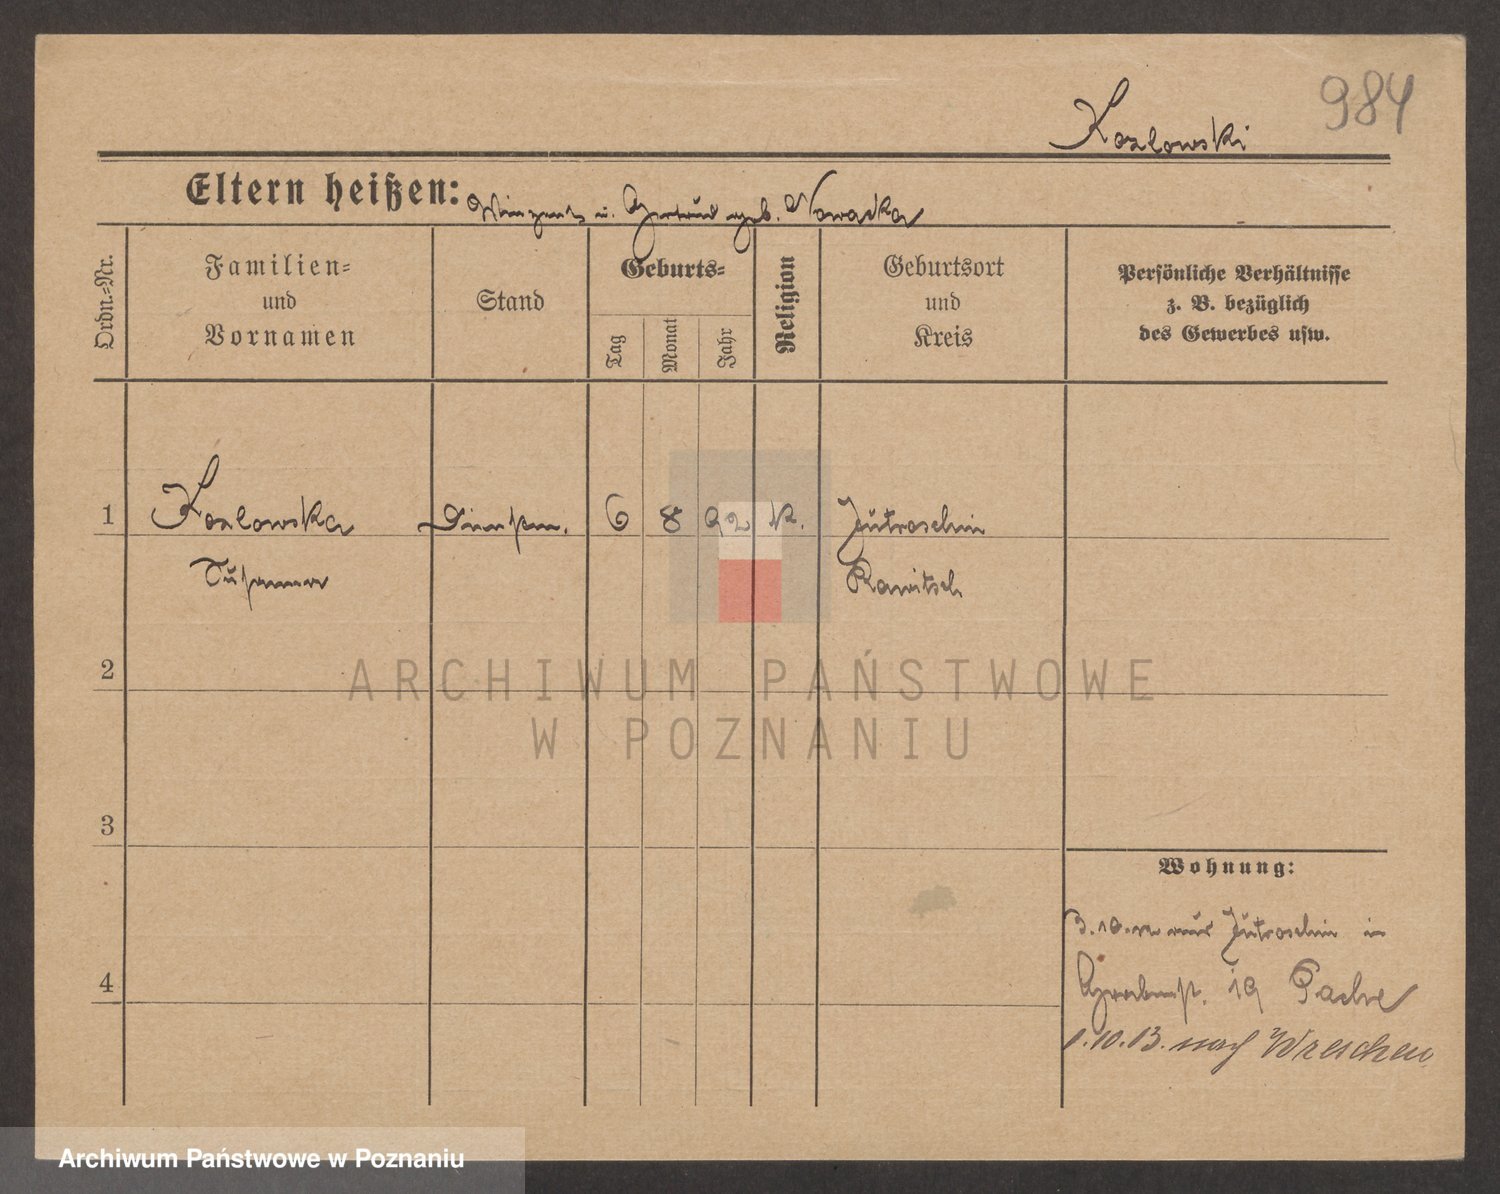 984
Kozlowski
Eltern heißen: Winzents u. Gertrud geb. Nowacka
Ordn.-Nr.
Familien-
und
Vornamen
Stand
Geburts-
Tag
Monat
Jahr
Religion
Geburtsort
und
Kreis
Persönliche Verhältnisse
z. B. bezüglich
des Gewerbes usw.
1 Kozlowska Dienstm. 6 8 92 k. Jutroschin
Susanna Rawitsch
2
ARCHIWUM PAŃSTWOWE
W POZNANIU
3
Wohnung:
3.10.12 aus Jutroschin in
4
Grabenst. 19 Pache
1.10.13. nach Wreschen
Archiwum Państwowe w Poznaniu